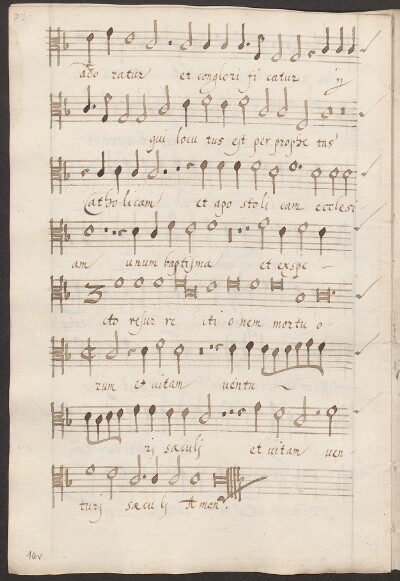 ado ratur et conglori fi catur ij
qui locu tus est per prophe tas
Catho licam et apo stoli cam ecclesi
am unum baptisma et exspe -
cto resur re cti o nem mortu o -
rum et vitam ventu ~
rj sæculj et vitam ven -
turj sæcu lj Amen.
16v